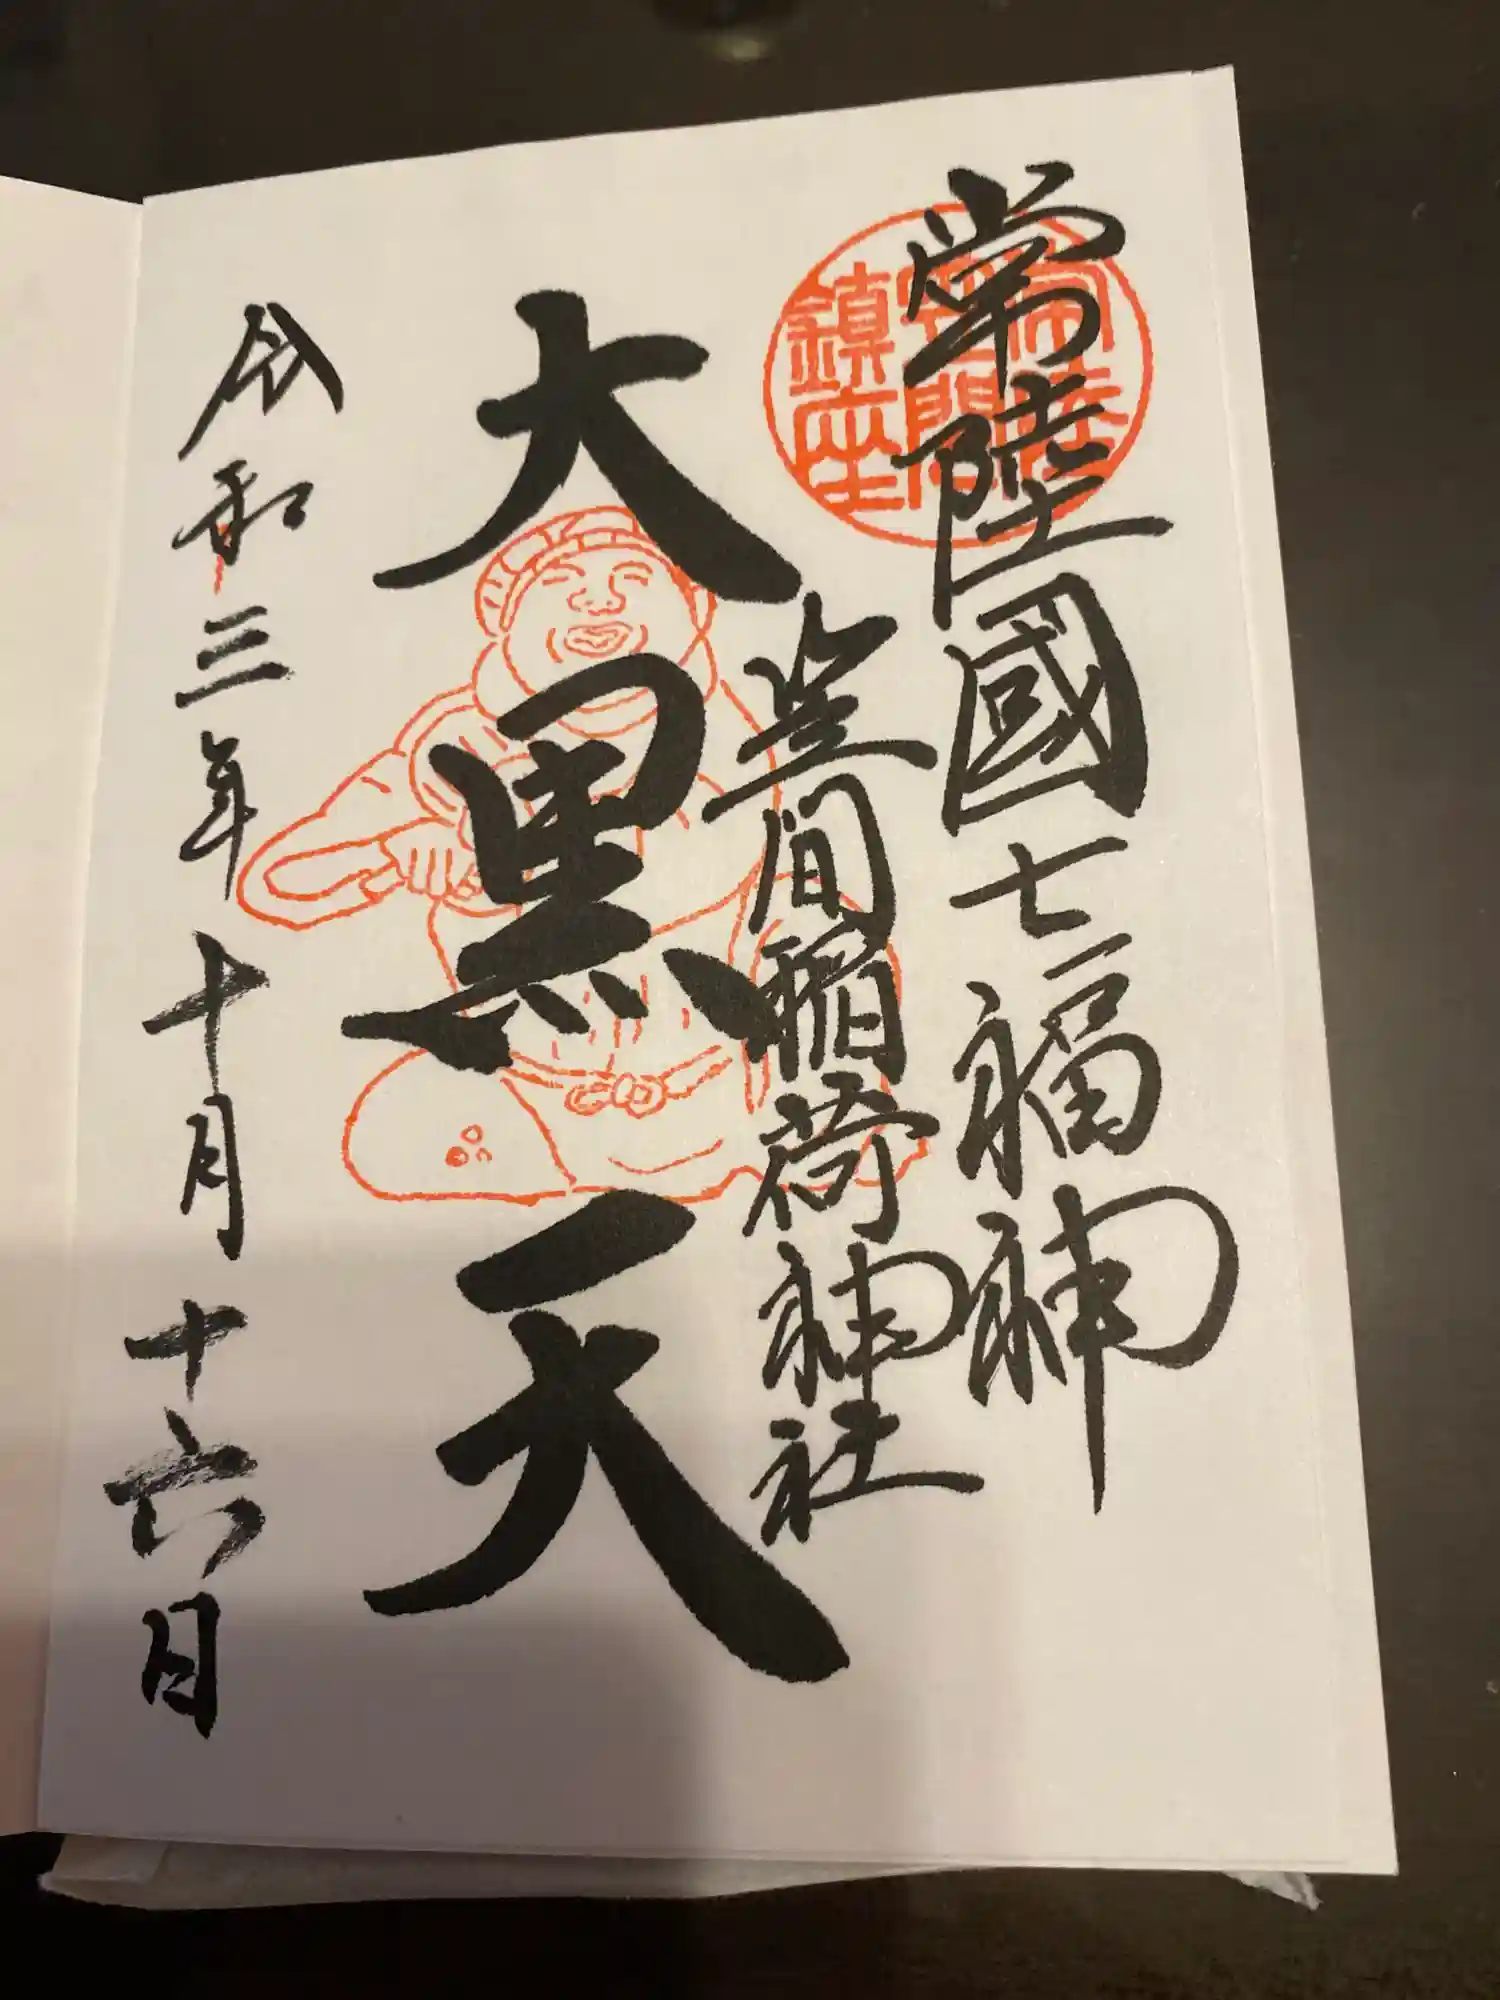 常陸國七福神
笠間稲荷神社
大黒天
令和三年十月十六日
常陸
笠間
鎮座